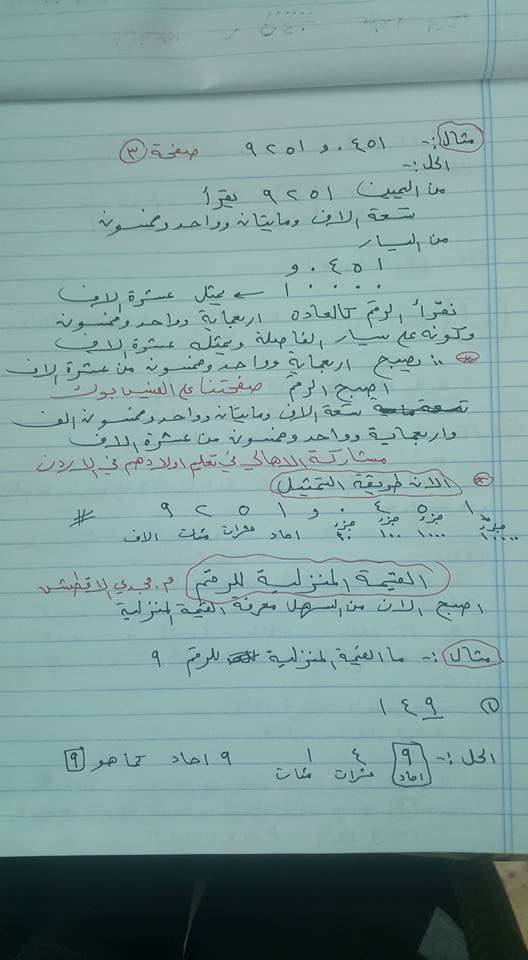 مثال :- ٠٤٥١ و ٩٢٥١ صفحة ٣
الحل :-
من اليمين ٩٢٥١ يقرأ
تسعة الاف ومايتان وواحد وخمسون
من اليسار
٠٤٥١ و
١٠٠٠٠ ← يمثل عشرة لاف
نقرأ الرقم كالعاده اربعماية وواحد وخمسون
وكونه على يسار الفاصلة ويمثله عشرة الاف
∴ يصبح اربعماية وواحد وخمسون من عشرة الاف
اصبح الرقم صفحتنا على الفيس بوك
تسعة الاف ومايتان وواحد وخمسون الف
واربعماية وواحد وخمسون من عشرة الاف
مشاركة الاهالي في تعلم اولادهم في الاردن
الان طريقة التمثيل
٩ ٢ ٥ ١ و ٠ ٤ ٥ ١
الاف مئات عشرات احاد جزر ١٠ جزر ١٠٠ جزر ١٠٠٠ جزر ١٠٠٠٠
القيمة المنزلية للرقم م. مجدي الاقطش
اصبح الان من السهل معرفة القيمة المنزلية
مثال :- ما القيمة المنزلية للرقم ٩
١ ١٤٩
الحل :- ٩ احاد ٤ عشرات ١ مئات ٩ احاد كما هو ٩